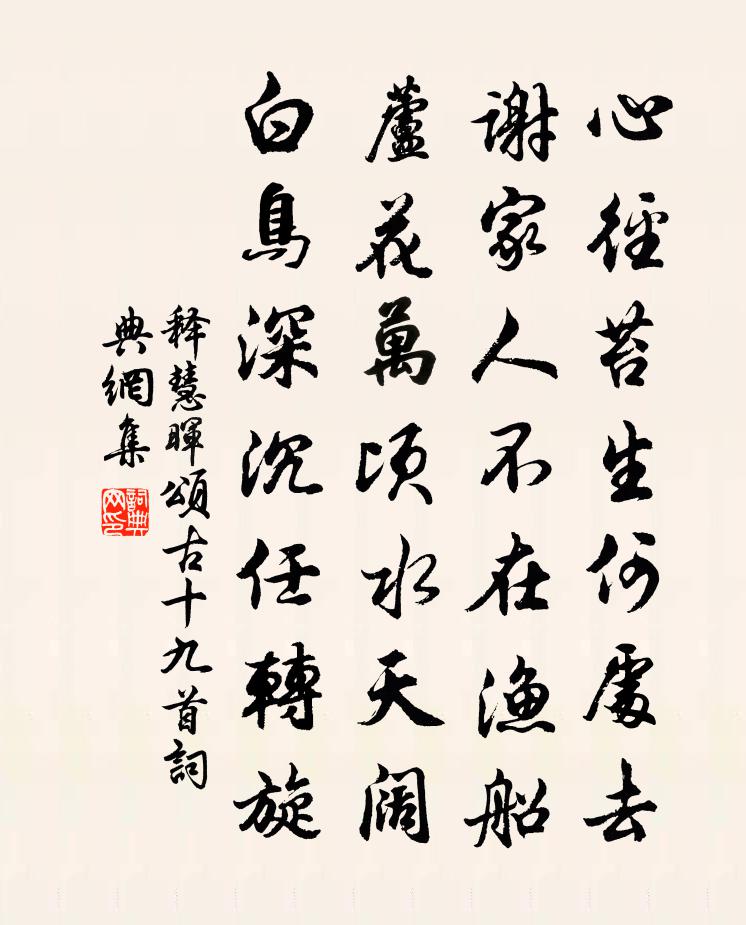 心徑苔生何處去
謝家人不在漁船
蘆花萬頃水天闊
白鳥深沉任轉旋
释慧暉頌古十九首詞
典網集
詞典网印